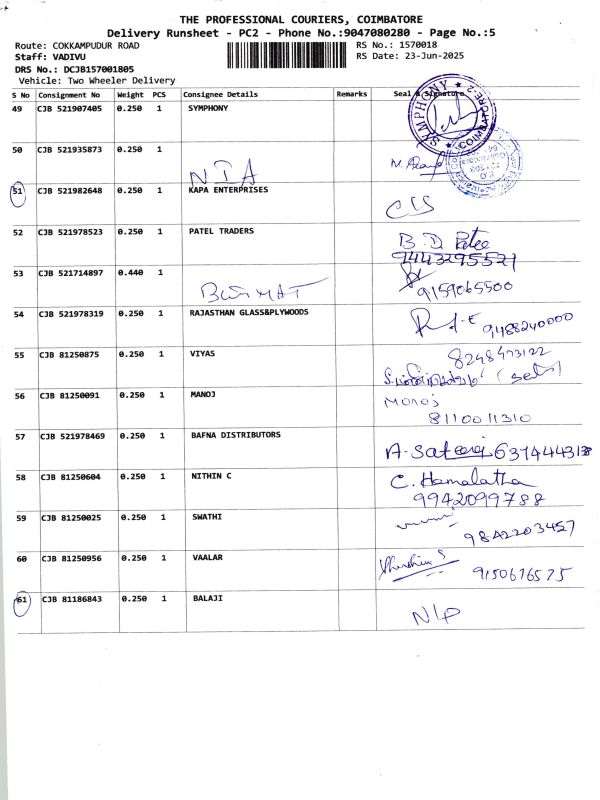 THE PROFESSIONAL COURIERS, COIMBATORE
Delivery Runsheet - PC2 - Phone No.:9047080280 - Page No.:5
Route: COKKAMPUDUR ROAD RS No.: 1570018
Staff: VADIVU RS Date: 23-Jun-2025
DRS No.: DCJB157001805
Vehicle: Two Wheeler Delivery
S No Consignment No Weight PCS Consignee Details Remarks Seal & Signature
49 CJB 521907405 0.250 1 SYMPHONY SYMPHONY COIMBATORE-2
50 CJB 521935873 0.250 1 NIA
51 CJB 521982648 0.250 1 KAPA ENTERPRISES
52 CJB 521978523 0.250 1 PATEL TRADERS B. D. Patel
9443295521
53 CJB 521714897 0.440 1 9159065500
54 CJB 521978319 0.250 1 RAJASTHAN GLASS&PLYWOODS 9488240000
55 CJB 81250875 0.250 1 VIYAS 8248473122
56 CJB 81250091 0.250 1 MANOJ Manoj
8110011310
57 CJB 521978469 0.250 1 BAFNA DISTRIBUTORS
58 CJB 81250604 0.250 1 NITHIN C C. Hemalatha
9942099788
59 CJB 81250025 0.250 1 SWATHI 9842203457
60 CJB 81250956 0.250 1 VAALAR 9150676575
61 CJB 81186843 0.250 1 BALAJI N/P